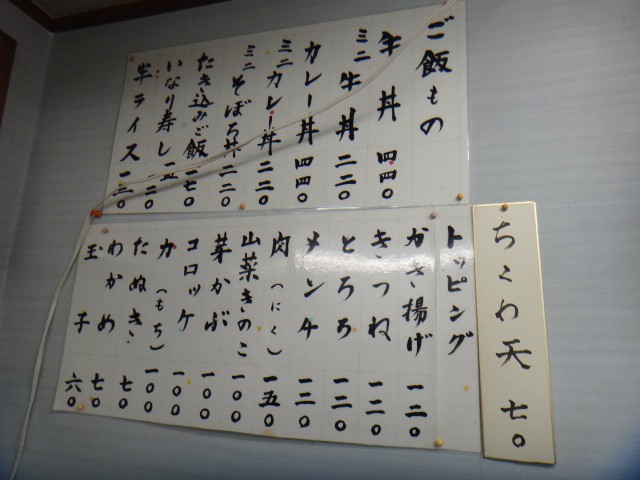 ご飯もの
牛丼 四四〇
ミニ牛丼 二二〇
カレー丼 四四〇
ミニカレー丼 二二〇
ミニそぼろ丼 二二〇
たき込みご飯 一七〇
いなり寿し
半ライス 一二〇
ちくわ天 七〇
トッピング
かき揚げ 一二〇
きつね 一二〇
とろろ 一二〇
メンチ 一三〇
肉（にく） 一五〇
山菜きのこ 一〇〇
芽かぶ 一〇〇
コロッケ 一〇〇
力（もち） 一〇〇
たぬき 七〇
わかめ 七〇
玉子 六〇